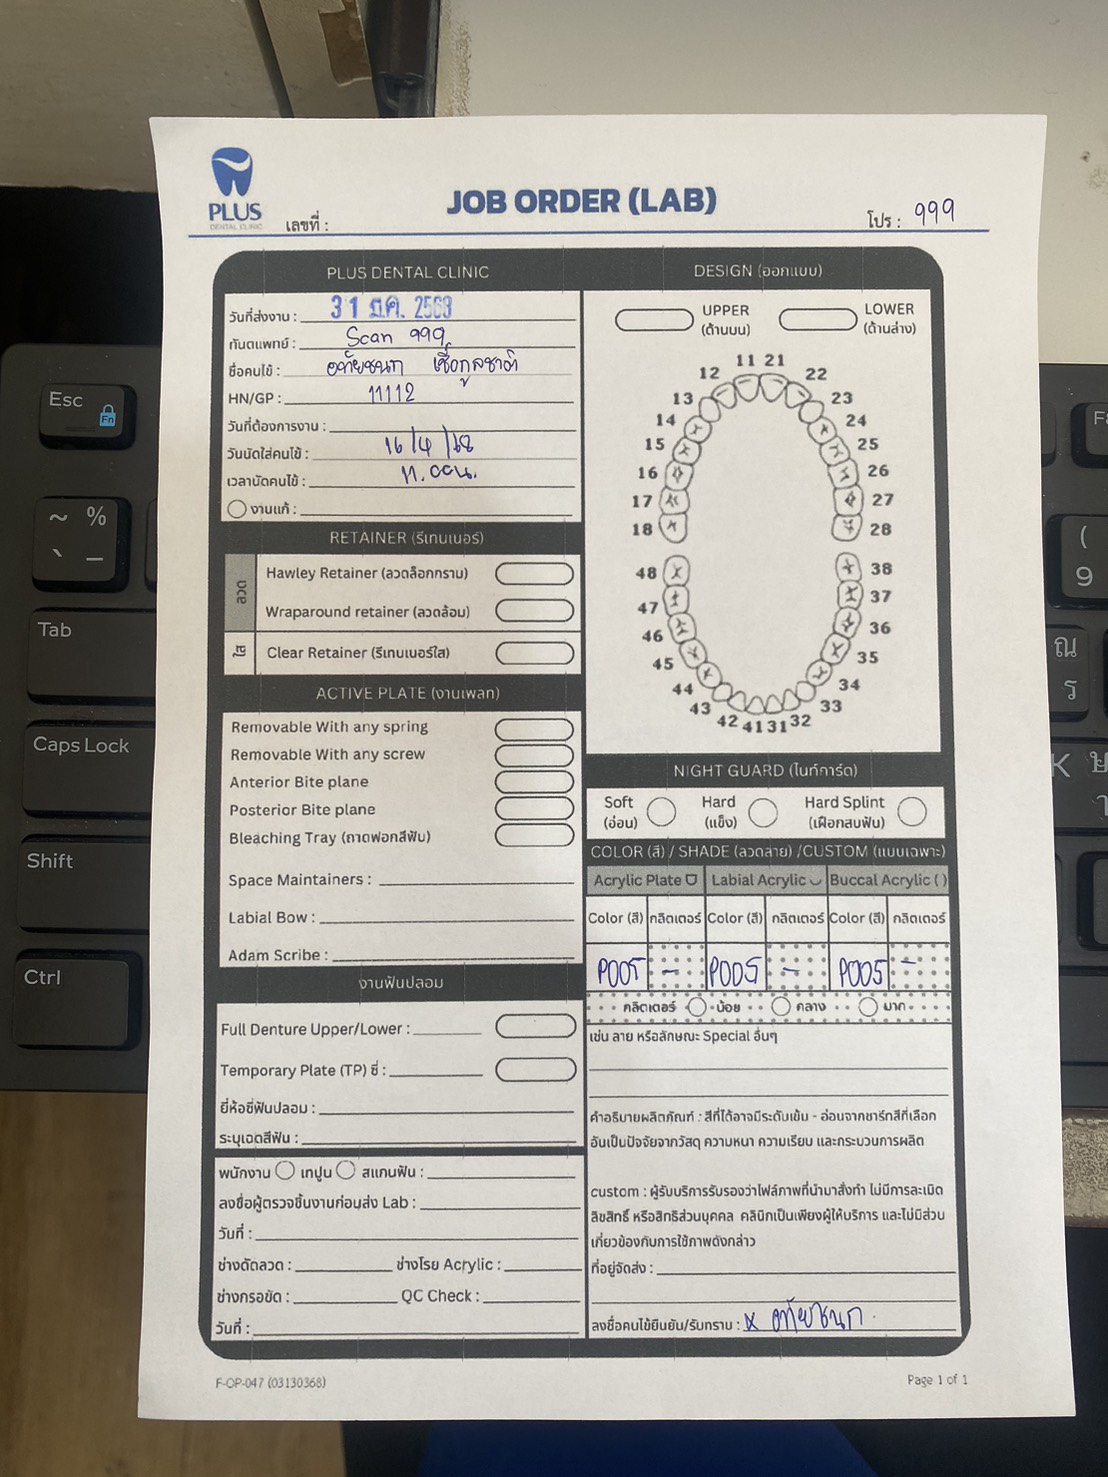 PLUS
DENTAL CLINIC
เลขที่ :
JOB ORDER (LAB)
โปร : 999
PLUS DENTAL CLINIC
วันที่ส่งงาน : 31 มี.ค. 2568
ทันตแพทย์ : Scan 999
ชื่อคนไข้ : อทัยชนก เชื้อกูลชาติ
HN/GP : 11112
วันที่ต้องการงาน :
วันนัดใส่คนไข้ : 16/4/68
เวลานัดคนไข้ :
งานแก้ :
RETAINER (รีเทนเนอร์)
ลวด
Hawley Retainer (ลวดล็อกกราม)
Wraparound retainer (ลวดล้อม)
ใส
Clear Retainer (รีเทนเนอร์ใส)
ACTIVE PLATE (งานเพลท)
Removable With any spring
Removable With any screw
Anterior Bite plane
Posterior Bite plane
Bleaching Tray (ถาดฟอกสีฟัน)
Space Maintainers :
Labial Bow :
Adam Scribe :
งานฟันปลอม
Full Denture Upper/Lower :
Temporary Plate (TP) ซี่ :
ยี่ห้อซี่ฟันปลอม :
ระบุเฉดสีฟัน :
พนักงาน เทปูน สแกนฟัน :
ลงชื่อผู้ตรวจชิ้นงานก่อนส่ง Lab :
วันที่ :
ช่างดัดลวด : ช่างโรย Acrylic :
ช่างกรอขัด : QC Check :
วันที่ :
DESIGN (ออกแบบ)
UPPER (ด้านบน)
LOWER (ด้านล่าง)
11 21
12 22
13 23
14 24
15 25
16 26
17 27
18 28
48 38
47 37
46 36
45 35
44 34
43 33
42 41 31 32
NIGHT GUARD (ไนท์การ์ด)
Soft (อ่อน)
Hard (แข็ง)
Hard Splint (เฝือกสบฟัน)
COLOR (สี) / SHADE (ลวดลาย) /CUSTOM (แบบเฉพาะ)
Acrylic Plate Labial Acrylic Buccal Acrylic ( )
Color (สี) กลิตเตอร์ Color (สี) กลิตเตอร์ Color (สี) กลิตเตอร์
P005 - P005 - P005 -
กลิตเตอร์ น้อย กลาง มาก
เช่น ลาย หรือลักษณะ Special อื่นๆ
คำอธิบายผลิตภัณฑ์ : สีที่ได้อาจมีระดับเข้ม - อ่อนจากชาร์ทสีที่เลือก
อันเป็นปัจจัยจากวัสดุ ความหนา ความเรียบ และกระบวนการผลิต
custom : ผู้รับบริการรับรองว่าไฟล์ภาพที่นำมาสั่งทำ ไม่มีการละเมิด
ลิขสิทธิ์ หรือสิทธิส่วนบุคคล คลินิกเป็นเพียงผู้ให้บริการ และไม่มีส่วน
เกี่ยวข้องกับการใช้ภาพดังกล่าว
ที่อยู่จัดส่ง :
ลงชื่อคนไข้ยืนยัน/รับทราบ : x อทัยชนก
F-OP-047 (03130368)
Page 1 of 1
Esc
Fn
~ %
` –
Tab
Caps Lock
Shift
Ctrl
(
9
ณ
ร
K ษ